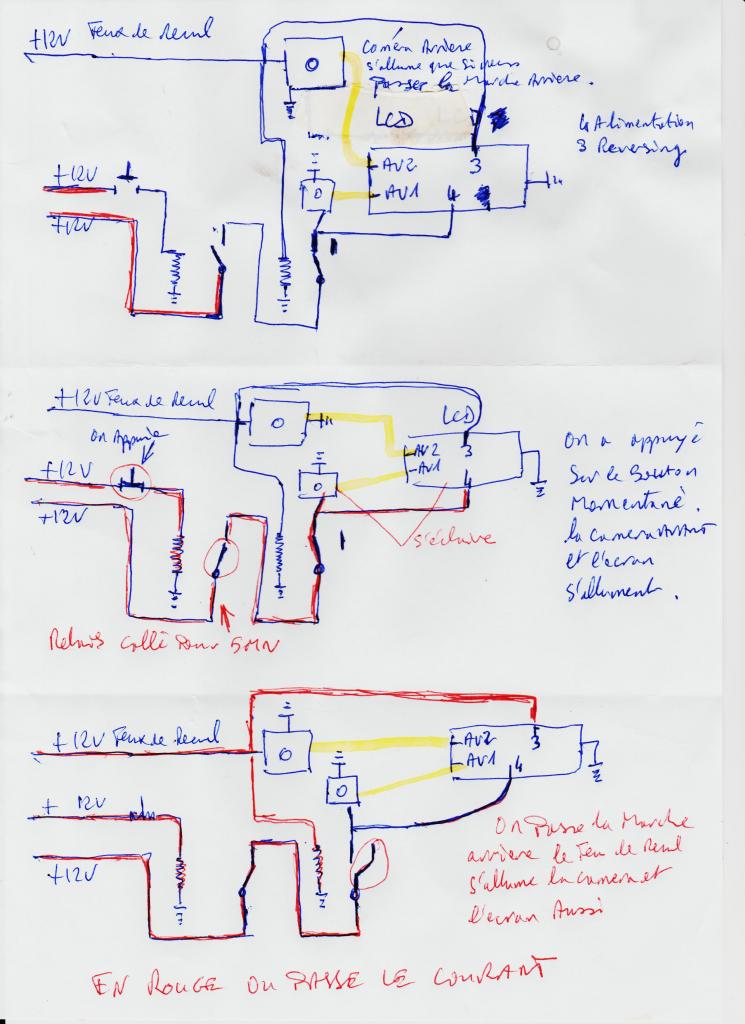 +12V Feux de Recul
Caméra Arriere
s'allume que si on
passer la Marche Arriere.
LCD
4 Alimentation
3 Reversing
AV2
3
AV1
4
+12V
+12V
+12V Feux de Recul
LCD
On Appuie
AV2
3
AV1
4
+12V
+12V
s'éclaire
On a appuyé
sur le Bouton
Momentané.
la camera AVANT
et l'écran
s'allument.
Relais collé pour 5MN
+12V Feux de Recul
AV2
3
AV1
4
+ 12V
+12V
On Passe la Marche
arriere le Feu de Recul
s'allume la camera et
l'écran Aussi
EN ROUGE OU PASSE LE COURANT